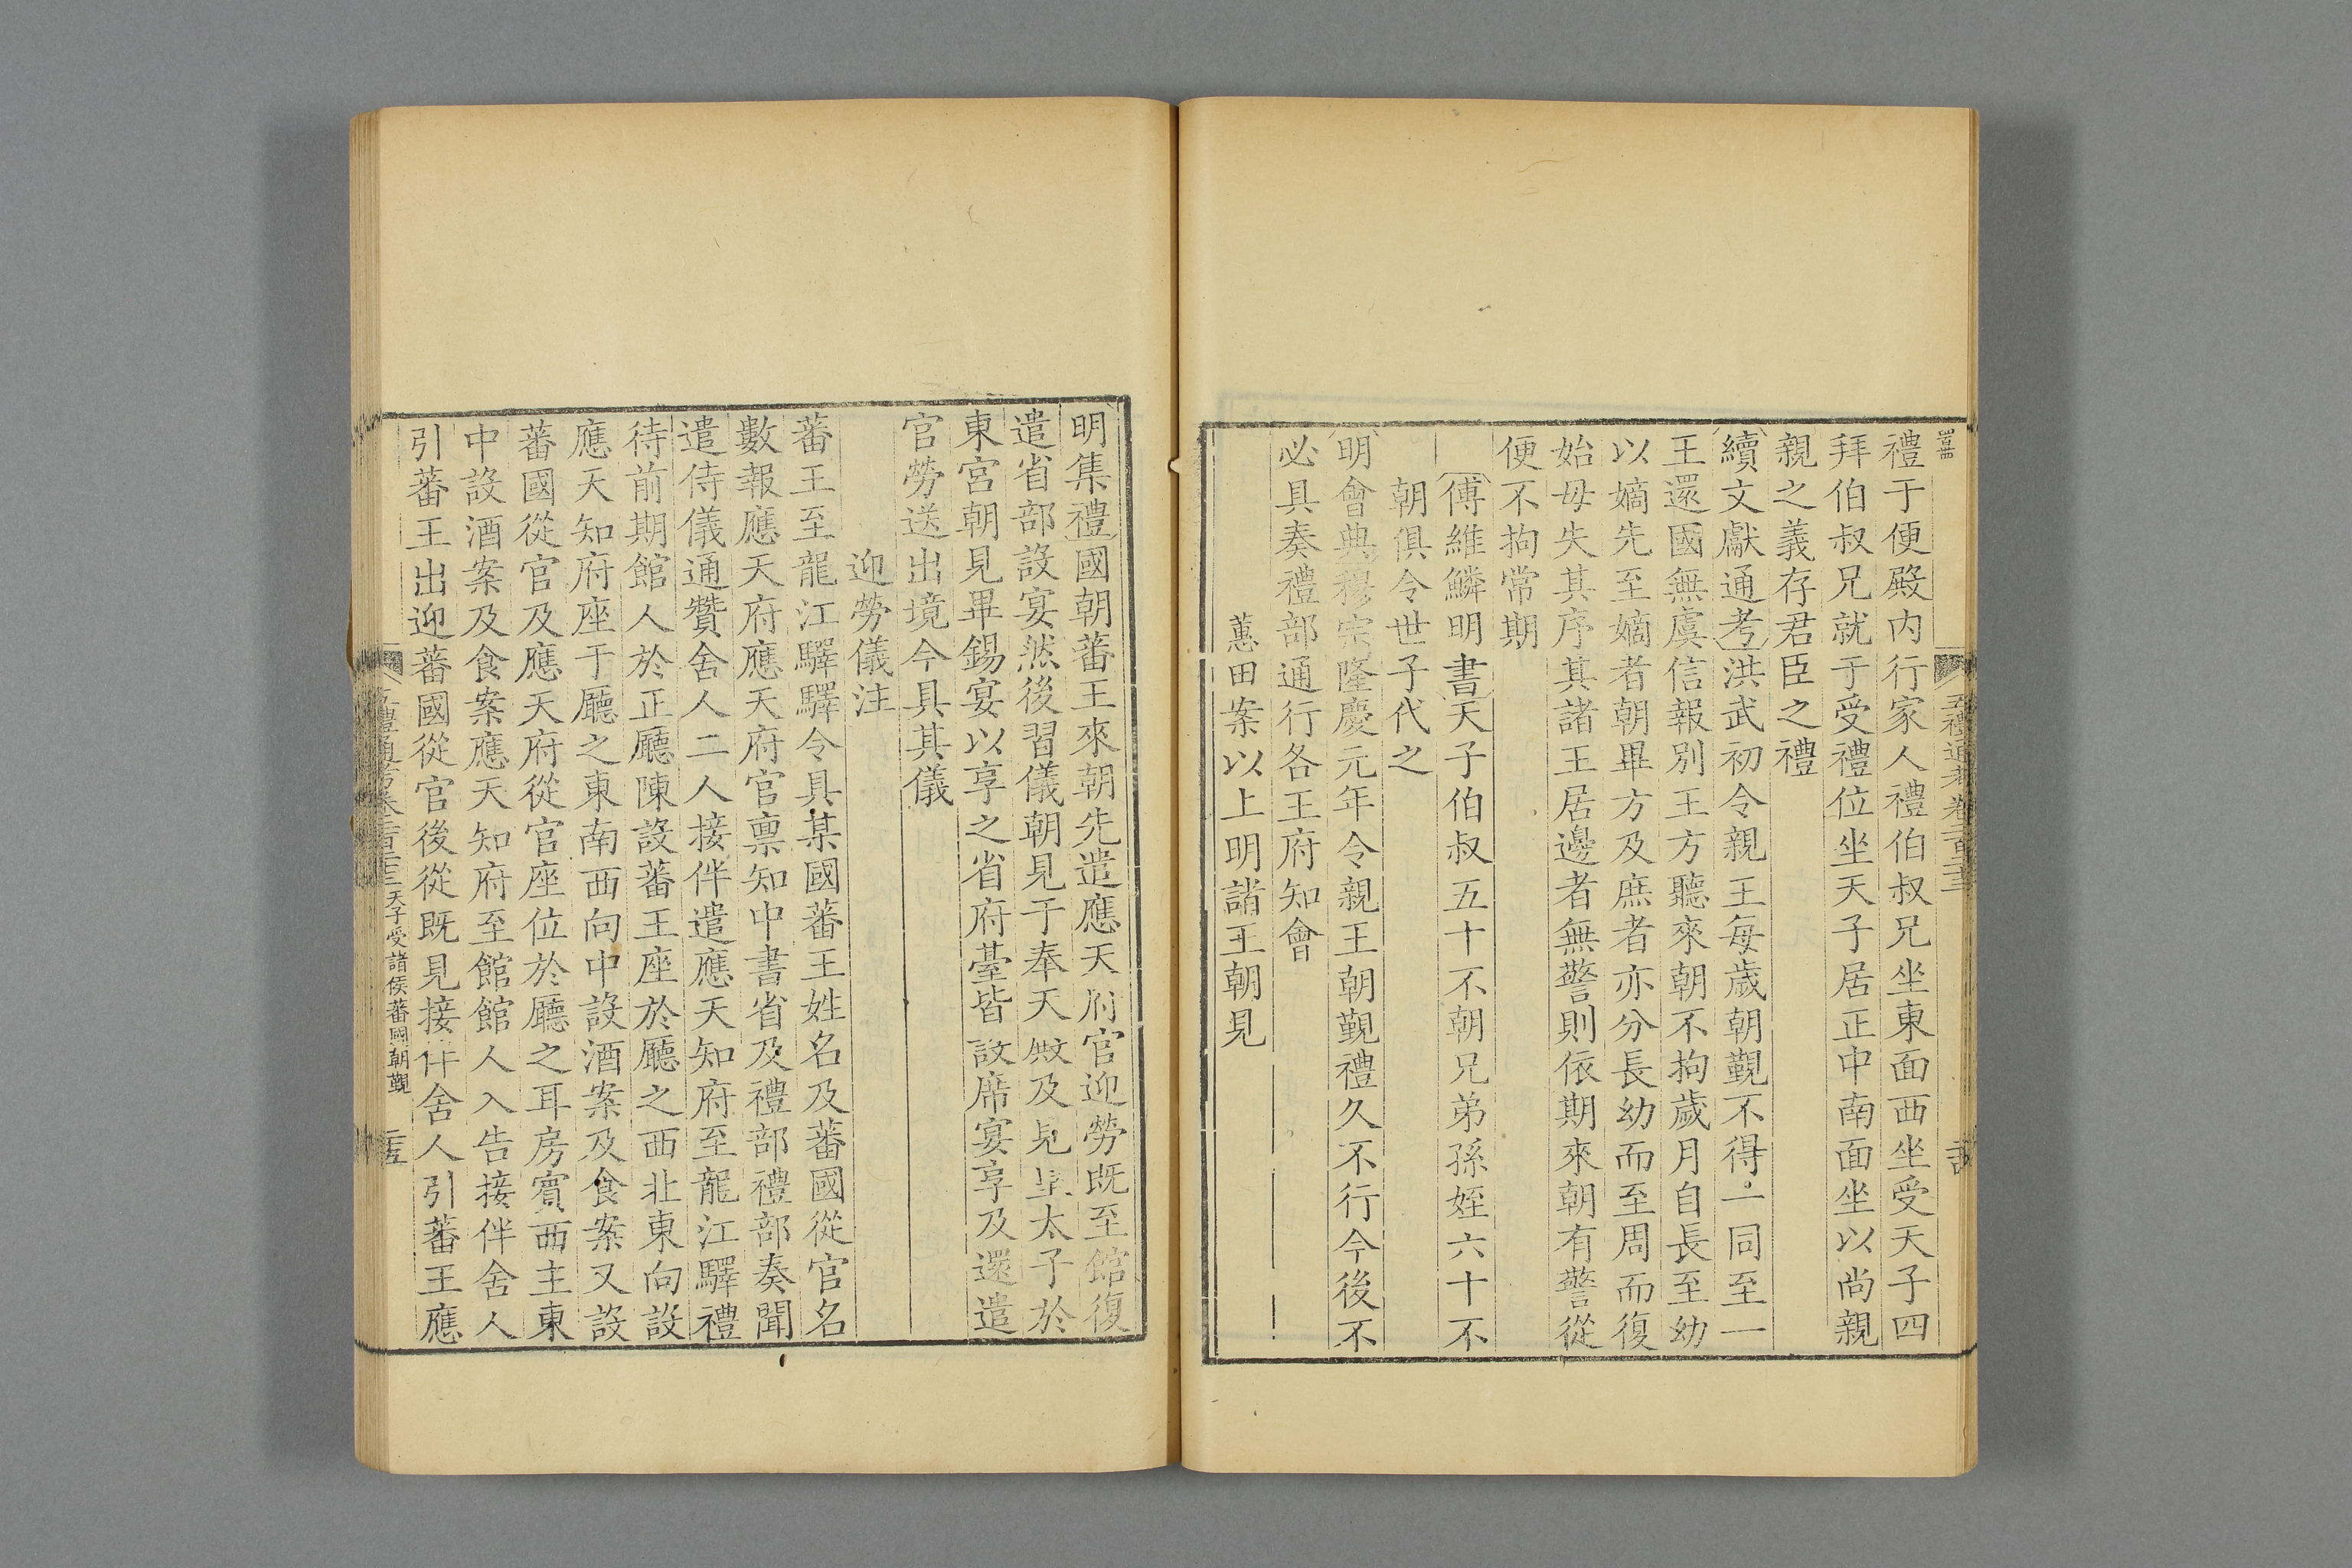 禮于便殿內行家人禮伯叔兄坐東面西坐受天子四
拜伯叔兄就于受禮位坐天子居正中南面坐以尚親
親之義存君臣之禮
續文獻通考洪武初令親王每歲朝覲不得一同至一
王還國無虞信報別王方聽來朝不拘歲月自長至幼
以嫡先至嫡者朝畢方及庶者亦分長幼而至周而復
始毋失其序其諸王居邊者無警則依期來朝有警從
便不拘常期
傅維鱗明書天子伯叔五十不朝兄弟孫姪六十不
朝俱令世子代之
明會典穆宗隆慶元年令親王朝覲禮久不行今後不
必具奏禮部通行各王府知會
蕙田案以上明諸王朝見
明集禮國朝蕃王來朝先遣應天府官迎勞既至館復
遣省部設宴然後習儀朝見于奉天殿及見皇太子於
東宮朝見畢錫宴以享之省府臺皆設席宴享及還遣
官勞送出境今具其儀
迎勞儀注
蕃王至龍江驛驛令具某國蕃王姓名及蕃國從官名
數報應天府應天府官稟知中書省及禮部禮部奏聞
遣侍儀通贊舍人二人接伴遣應天知府至龍江驛禮
待前期館人於正廳陳設蕃王座於廳之西北東向設
應天知府座于廳之東南西向中設酒案及食案又設
蕃國從官及應天府從官座位於廳之耳房賓西主東
中設酒案及食案應天知府至館館人入告接伴舍人
引蕃王出迎蕃國從官後從既見接伴舍人引蕃王應
五禮通考卷二百二十三 天子受諸侯蕃國朝覲 二十五